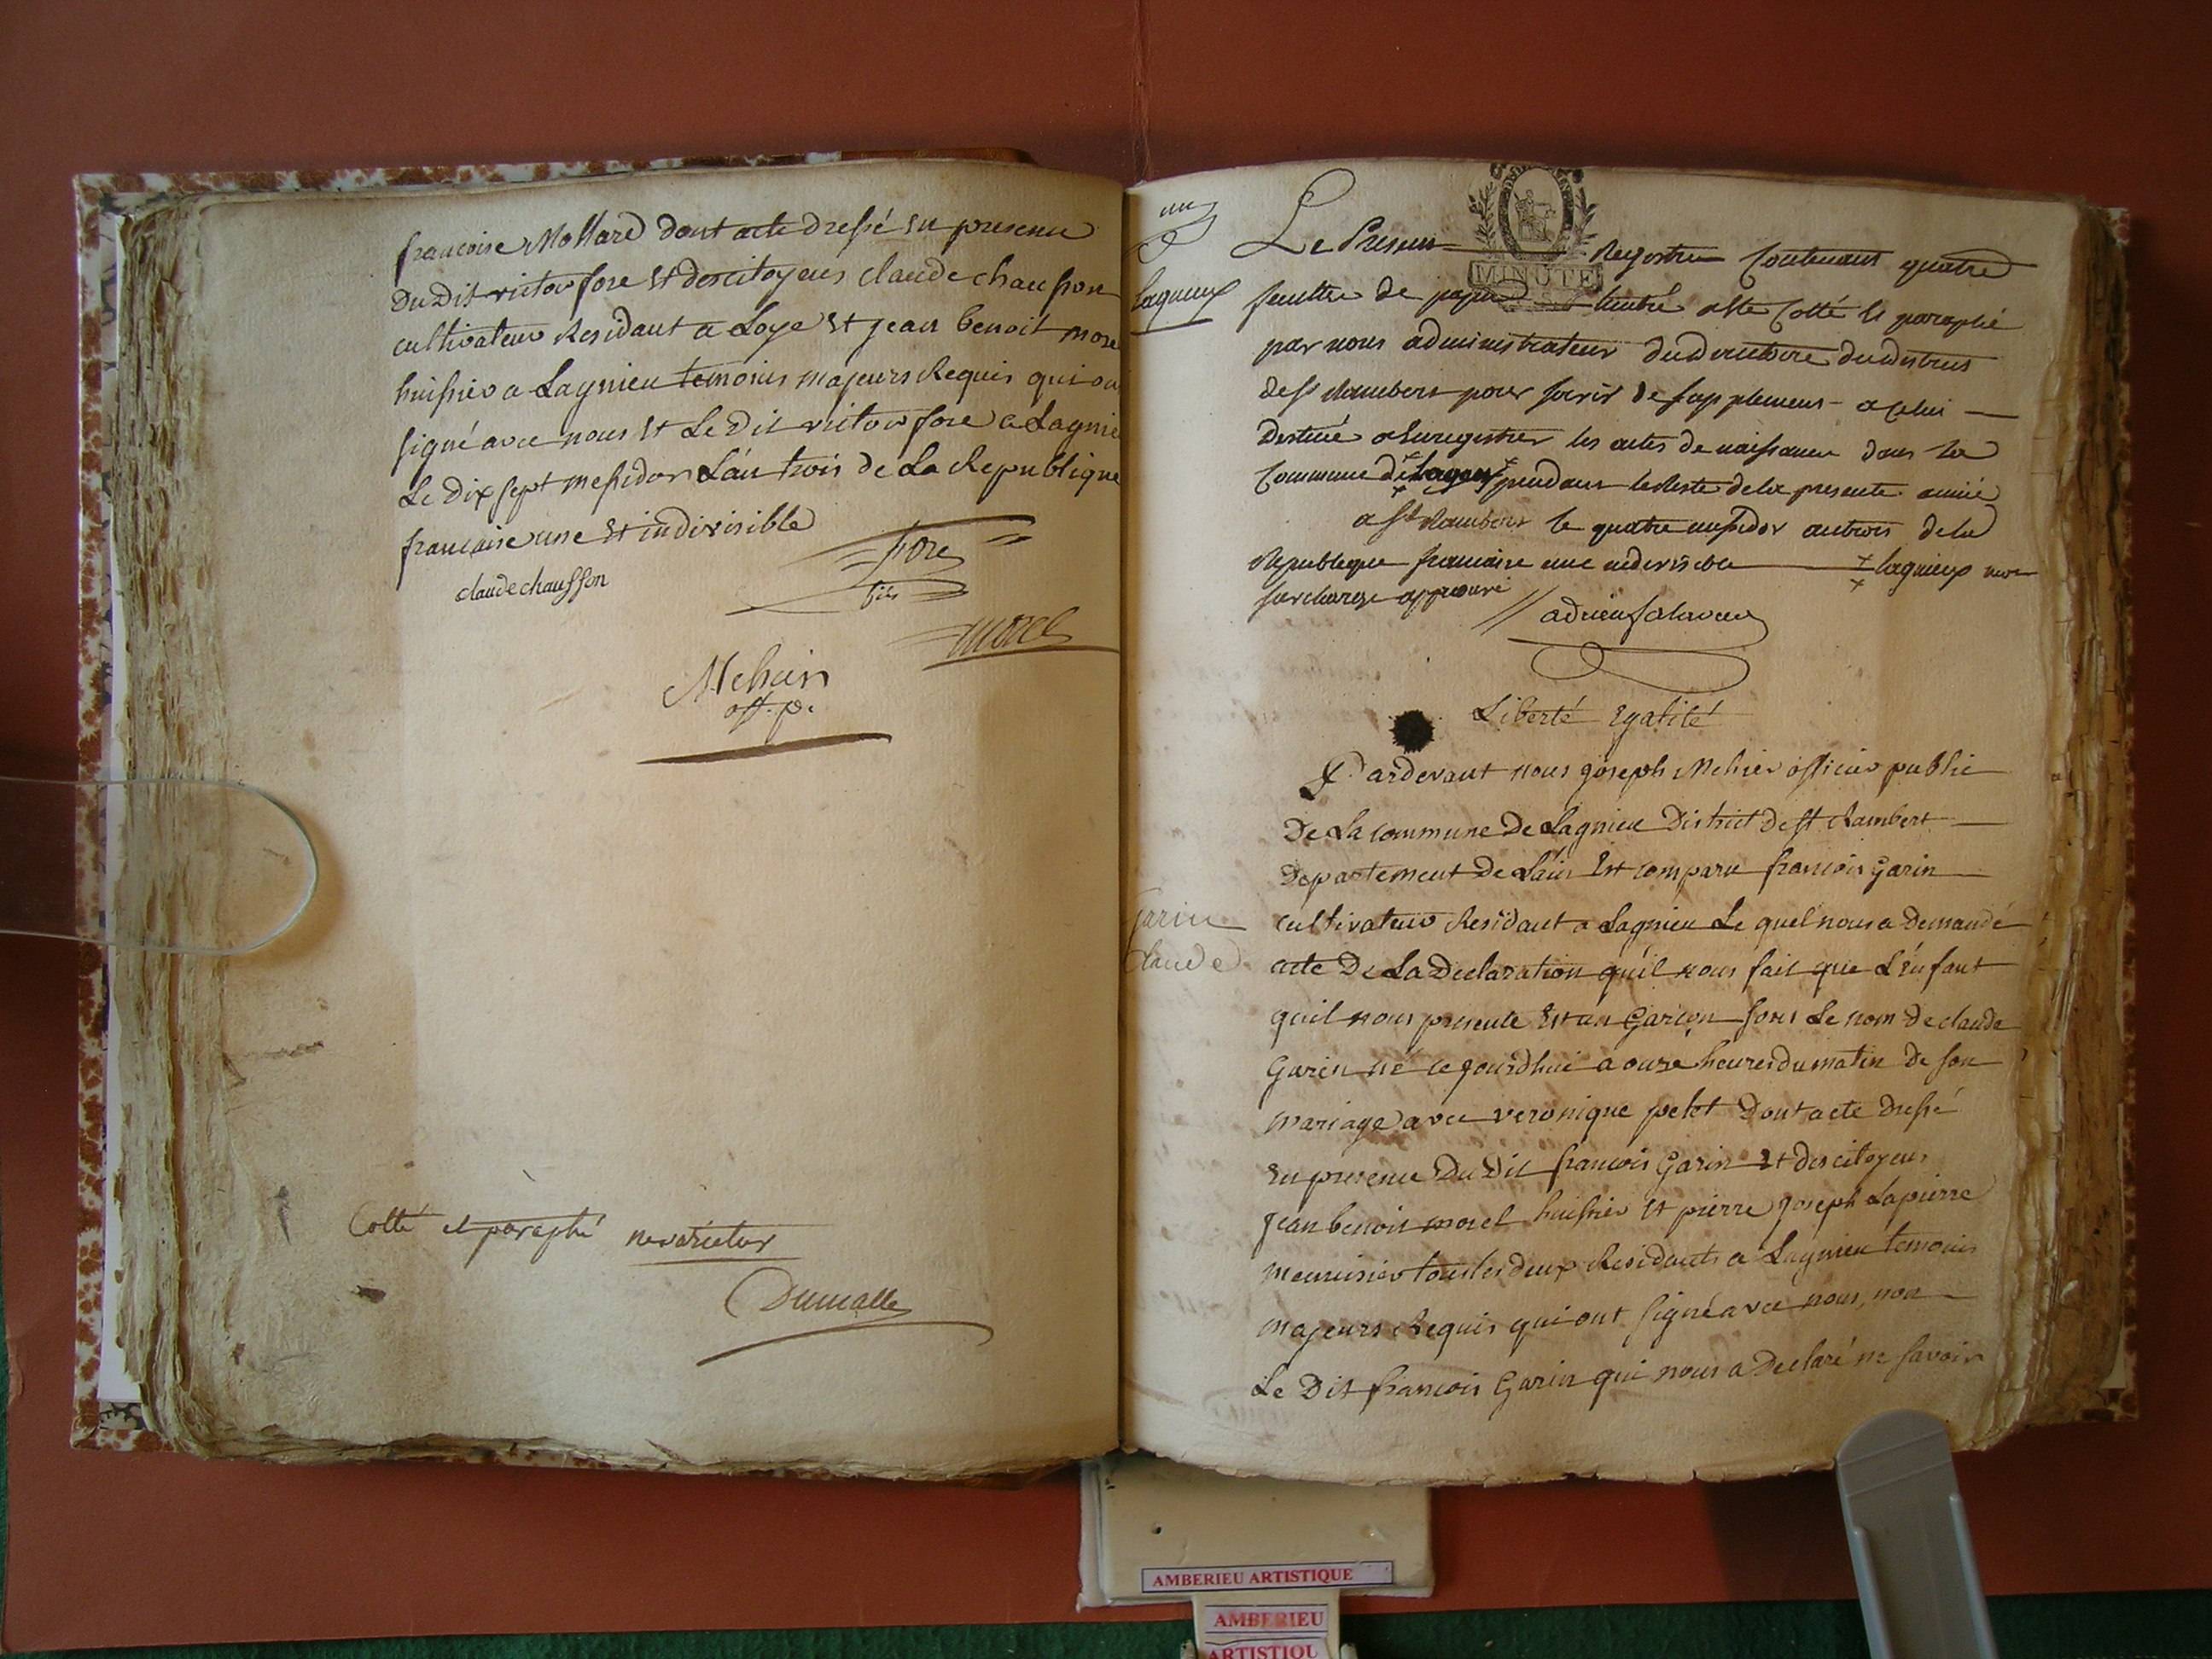 francoise Mollard dont acte dressé En presence
Du Dit victor fore Et des citoyens claude chausson
cultivateur Residant a Loye Et jean benoit more
huissier a Lagnieu temoins majeurs Requis qui on
signé avec nous Et Le Dit victor fore a Lagnie
Le Dix sept messidor L'an trois de La Republique
francaise une Et indivisible
claude chausson
fore
fils
morel
Mehier
off. p.
Cotté et paraphé nevarietur
Dumalle
un
Lagnieux
MINUTE
Le Present Registre Contenant quatre
feuilles de papier timbré a été Cotté et paraphé
par nous administrateur du directoire du district
de st Rambert pour servir de supplement a celui
Destiné a Enregistrer les actes de naissance dans la
Commune de pendant le Reste de la presente année
a st Rambert le quatre messidor an trois de la
Republique francaise une indivisible lagnieux
surcharge approuvé
Liberté Egalité
Pardevant nous joseph Mehier officier public
De La commune De Lagnieu District De st Rambert
Departement De L'ain Est comparu francois Garin
Garin
Claude
cultivateur Residant a Lagnieu Le quel nous a Demandé
acte De La Declaration qu'il nous fait que L'Enfant
quil nous presente Est un Garcon sous Le nom De claude
Garin né ce jourdhui a onze heures du matin De son
mariage avec veronique pelet Dont acte Dressé
En presence Du Dit francois Garin Et Des citoyens
jean benoit morel huissier Et pierre joseph Lapierre
menuisier tous les deux Residants a Lagnieu temoins
majeurs Requis qui ont signé avec nous, non
Le Dit francois Garin qui nous a Declaré ne savoir
AMBERIEU ARTISTIQUE
AMBERIEU
ARTISTIQU